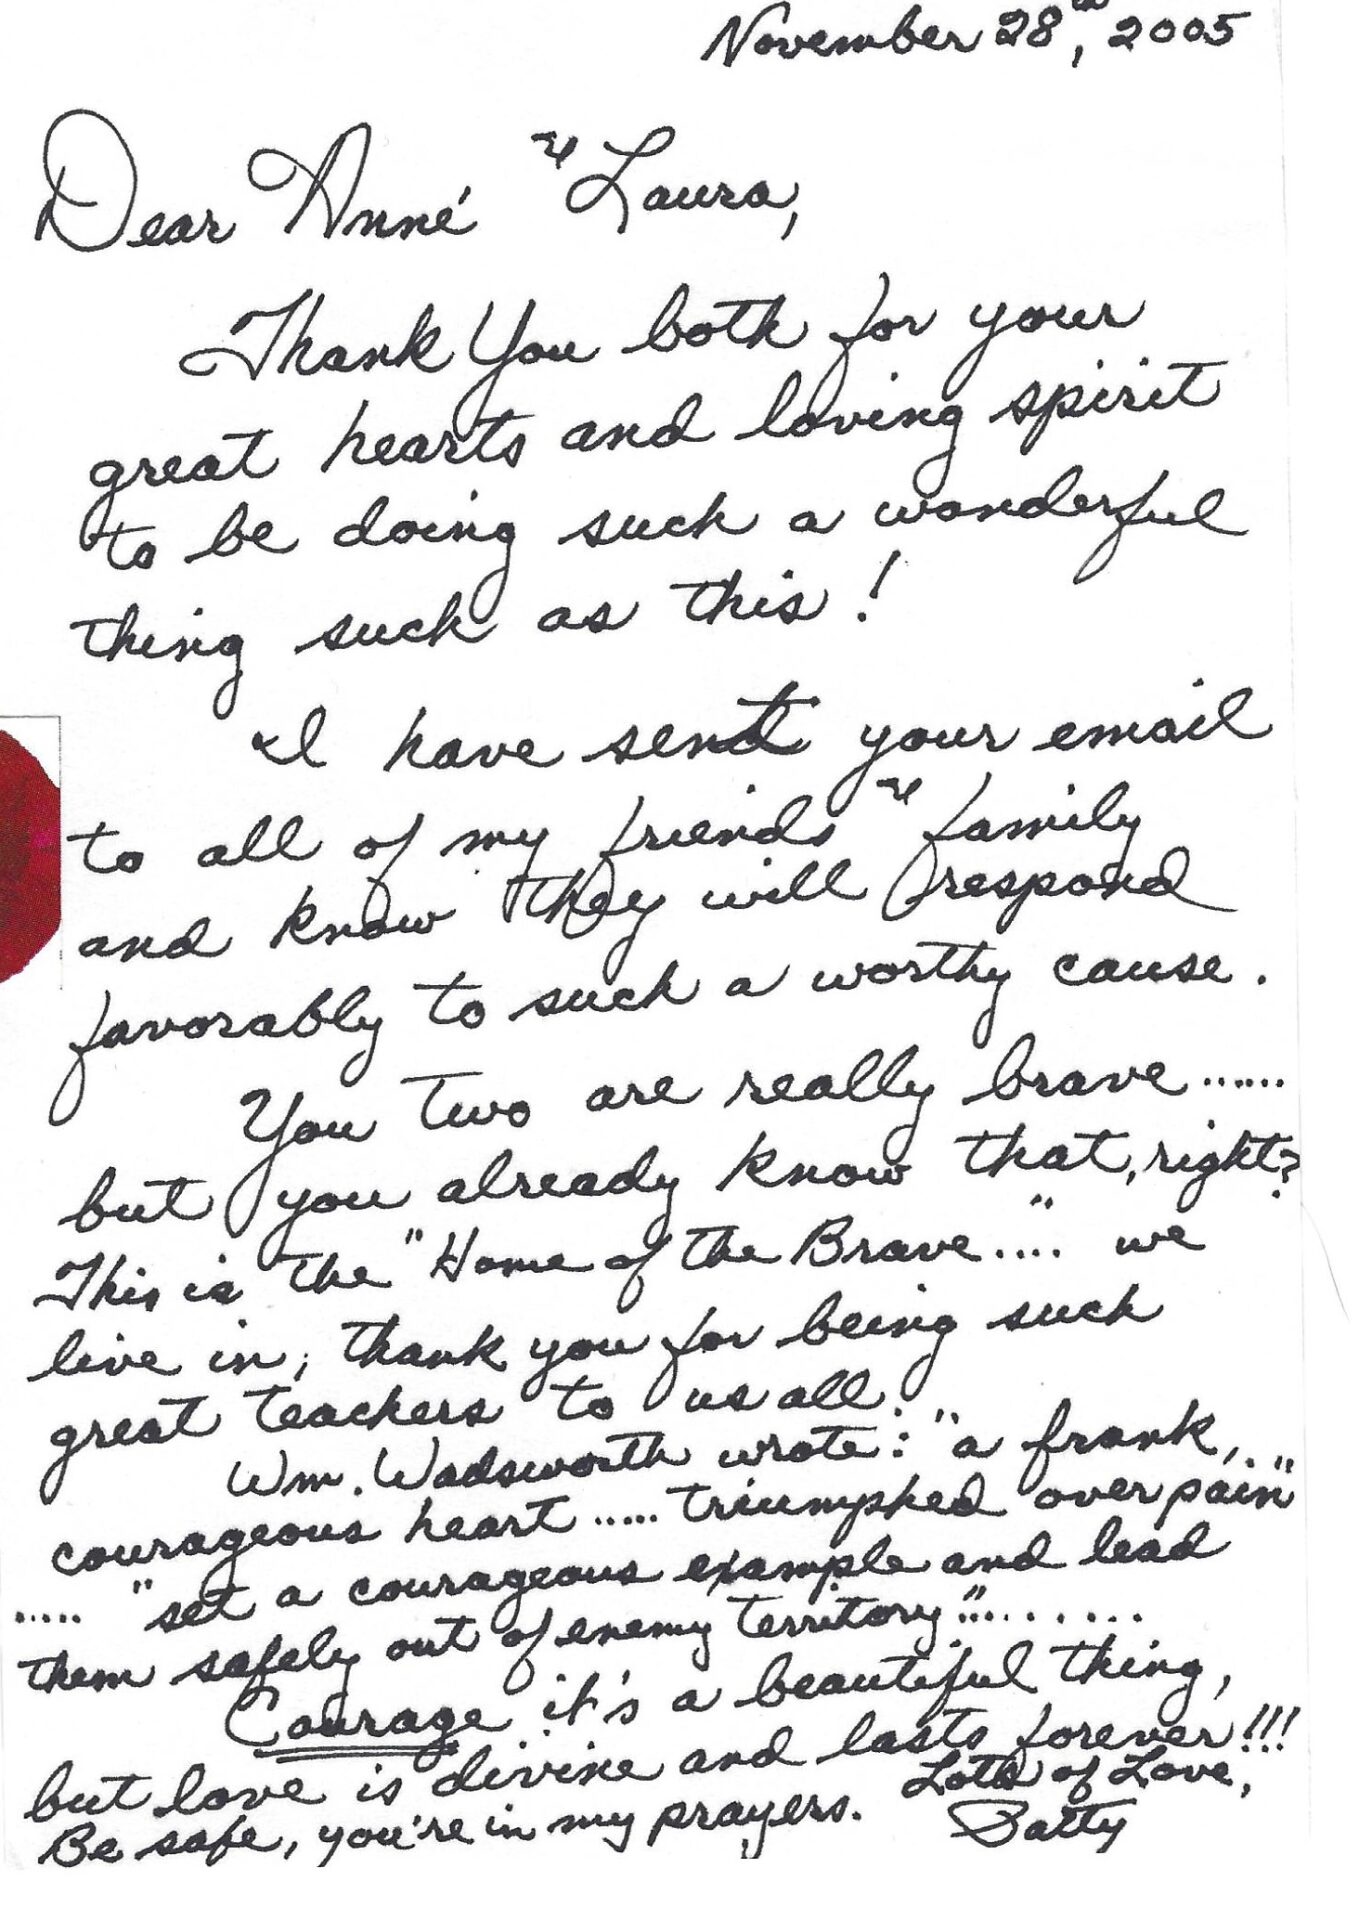 November 28th, 2005
Dear Anné & Laura,
Thank You both for your
great hearts and loving spirit
to be doing such a wonderful
thing such as this!
I have sent your email
to all of my friends & family
and know they will respond
favorably to such a worthy cause.
You two are really brave......
but you already know that, right?
This is the "Home of the Brave...." we
live in; thank you for being such
great teachers to us all.
Wm. Wadsworth wrote: "a frank,
courageous heart..... triumphed over pain"
..... "set a courageous example and lead
them safely out of enemy territory"..........
Courage it's a beautiful thing,
but love is divine and lasts forever!!!
Be safe, you're in my prayers. Lots of Love,
Patty